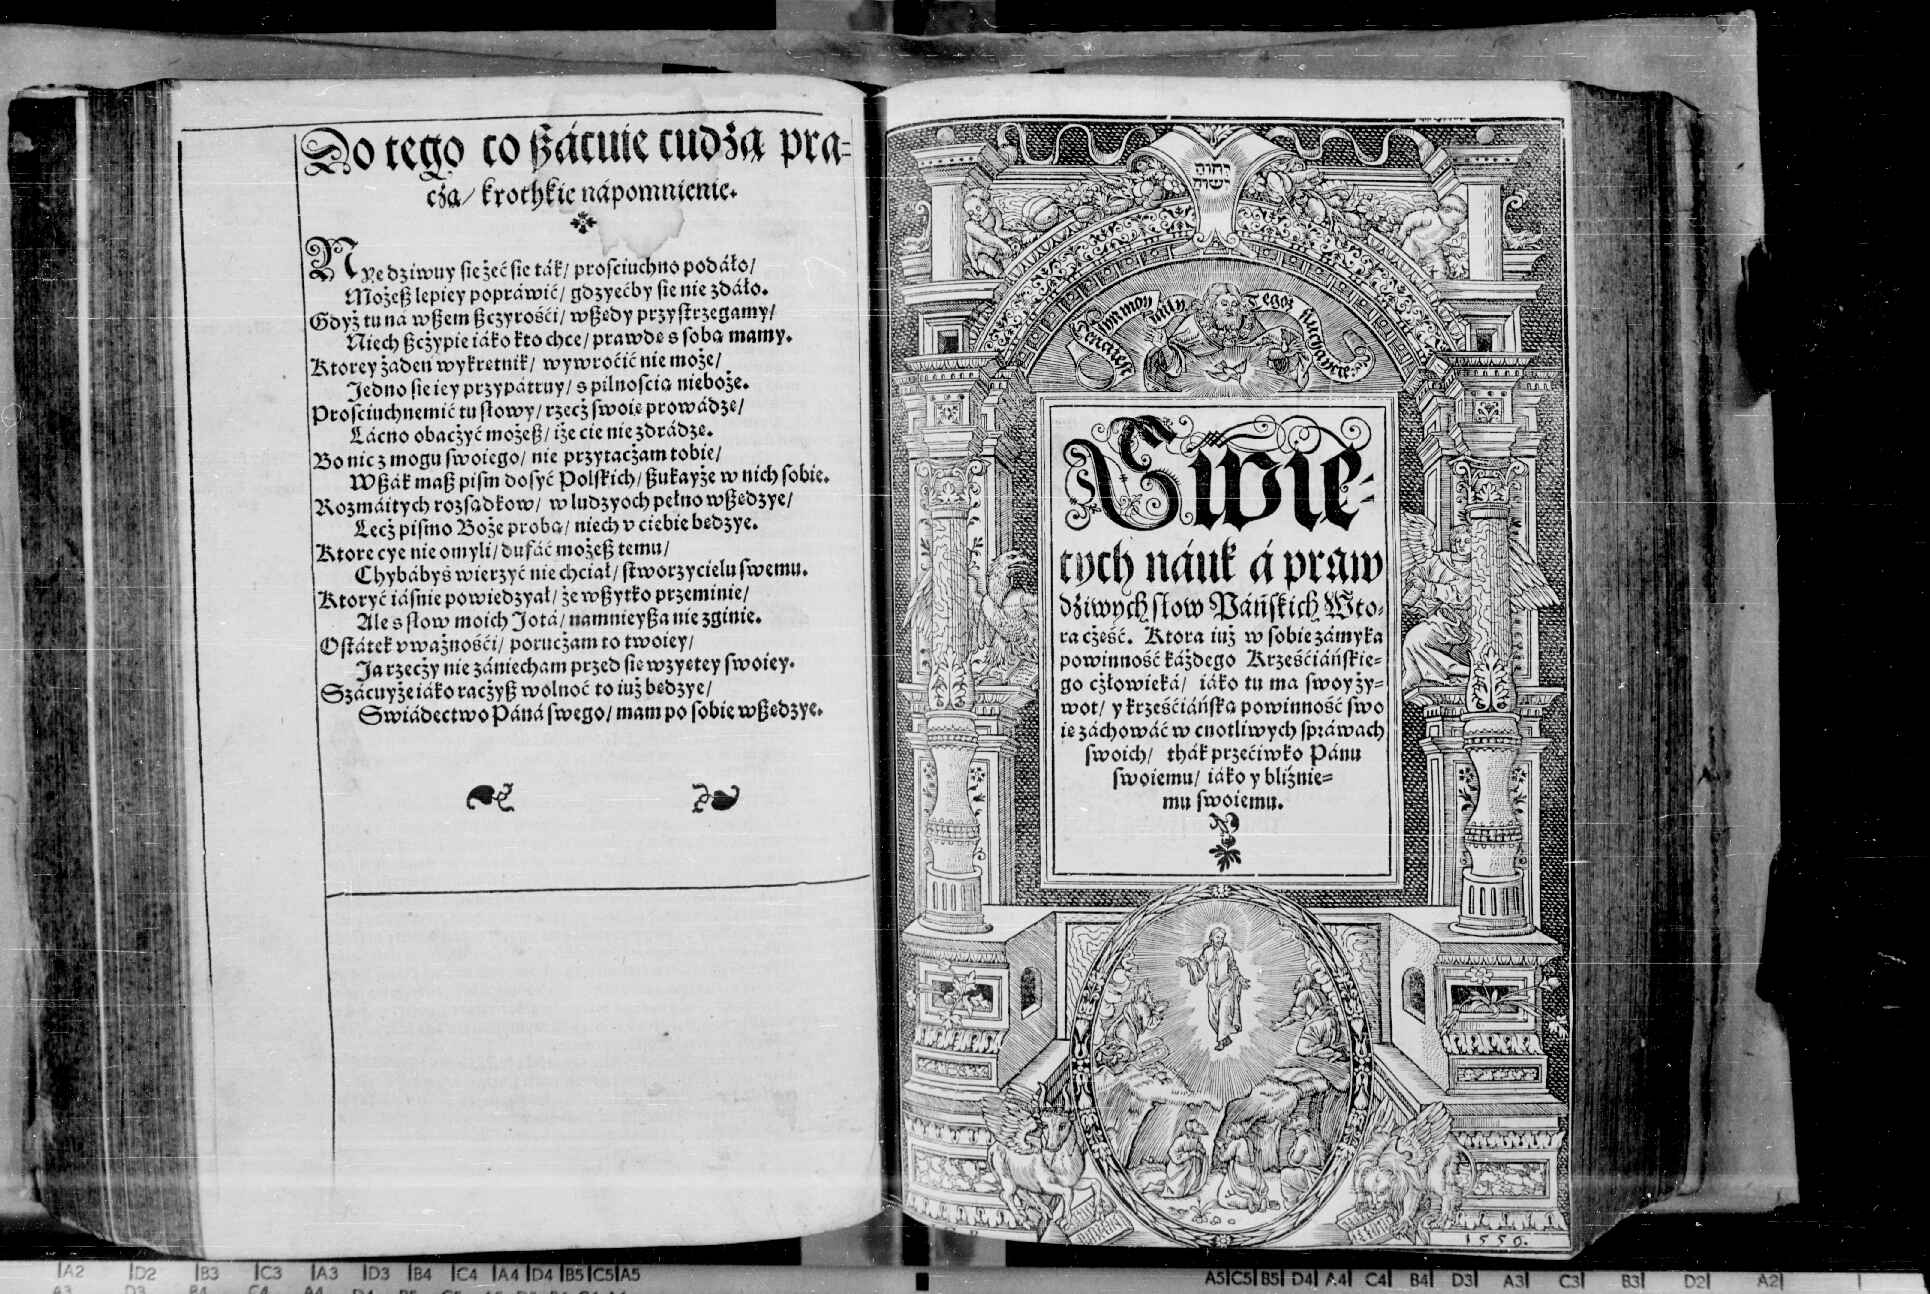 Do tego co ßácuie cudzą prą=
cżą/ krothkie nápomnienie.
Nye dziwuy sie żeć sie ták/ prosciuchno podáło/
Możeß lepiey popráwić/ gdzyećby sie nie zdáło.
Gdyż tu ná wßem ßczyrośći/ wßędy przystrzegamy/
Niech ßcżypie iáko kto chce/ prawdę s sobą mamy.
Ktorey żaden wykrętnik/ wywroćić nie może/
Jedno sie iey przypátruy/ s pilnoscią nieboże.
Prosciuchnemić tu słowy/ rzecż swoię prowádzę/
Lácno obacżyć możeß/ iże cie nie zdrádzę.
Bo nic z mogu swoiego/ nie przytacżam tobie/
Wßák maß pism dosyć Polskich/ ßukayże w nich sobie.
Rozmáitych rozsądkow/ w ludzyoch pełno wßędzye/
Lecż pismo Boże proba/ niech v ciebie będzye.
Ktore cye nie omyli/ dufáć możeß temu/
Chybábyś wierzyć nie chciał/ stworzycielu swemu.
Ktoryć iásnie powiedzyał/ że wßytko przeminie/
Ale s słow moich Jotá/ namnieyßa nie zginie.
Ostátek vważnośći/ porucżam to twoiey/
Ja rzecży nie zániecham przed się wzyętey swoiey.
Szácuyże iáko racżyß wolnoć to iuż będzye/
Swiádectwo Páná swego/ mam po sobie wßędzye.
יהוה
ישוה
Ten iest syn moy miły Tegoż słuchaycie
Swię-
tych náuk á praw
dźiwych słow Páńskich Wto-
ra cżęść. Ktora iuż w sobie zámyka
powinność káżdego Krześćiáńskie=
go cżłowieká/ iáko tu ma swoy ży=
wot/ y krześćiáńską powinność swo
ię záchowáć w cnotliwych spráwach
swoich/ thák przećiwko Pánu
swoiemu/ iáko y bliźnie=
mu swoiemu.
1556.
A2 D2 B3 C3 A3 D3 B4 C4 A4 D4 B5 C5 A5
A5 C5 B5 D4 A4 C4 B4 D3 A3 C3 B3 D2 A2